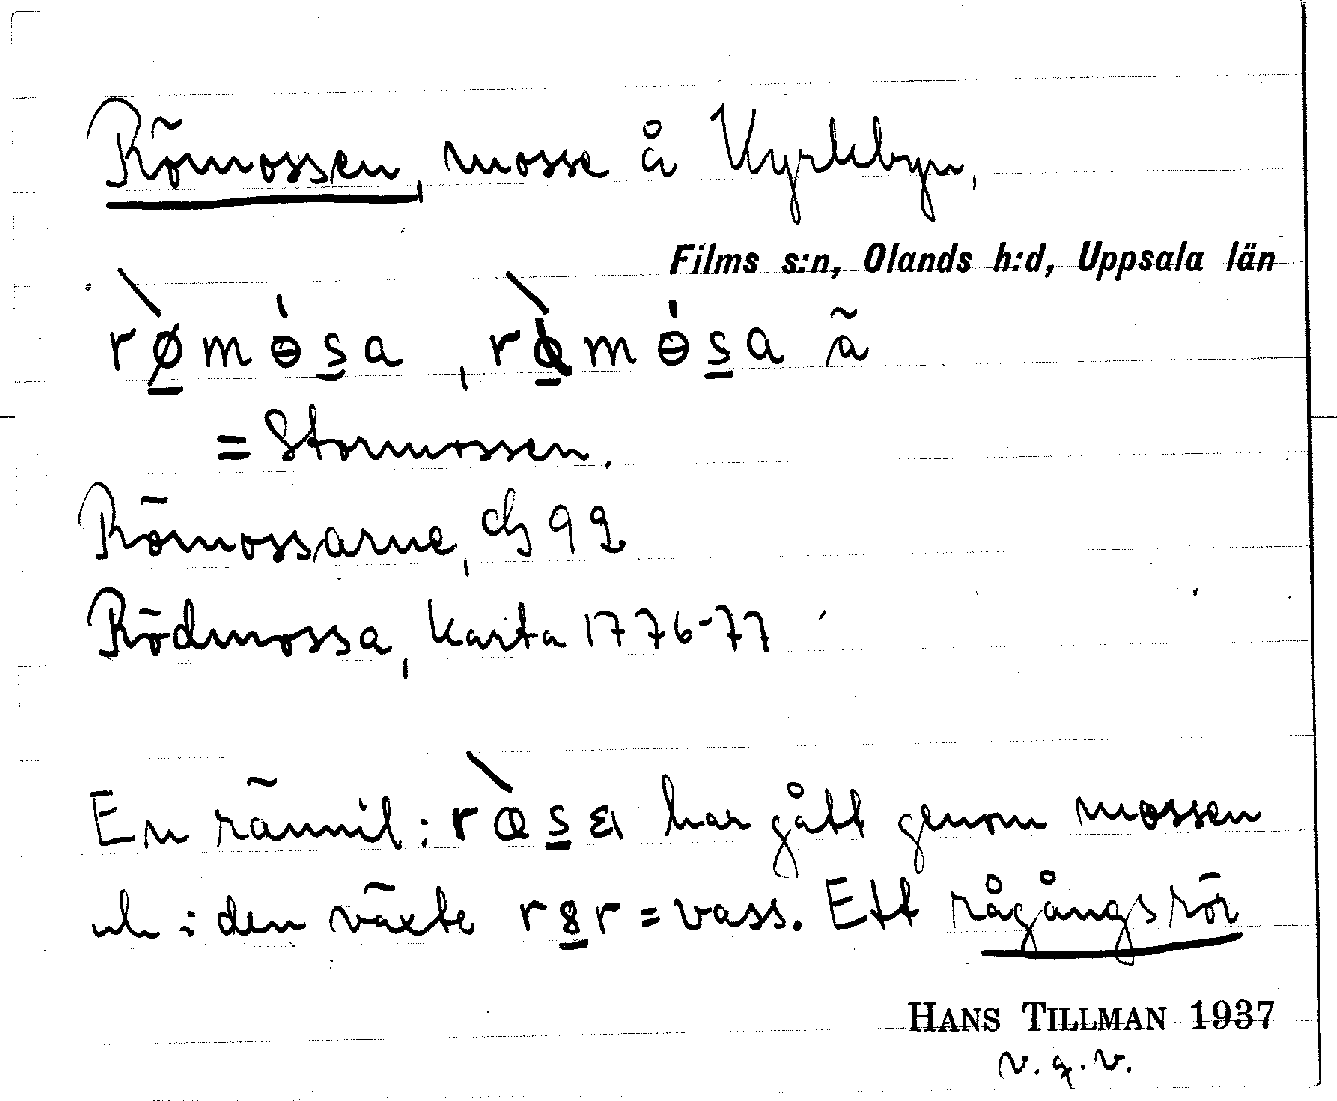 Römossen, mosse å Kyrkbyn,
Films s:n, Olands h:d, Uppsala län
rø̀mɵ́sa, rø̀mɵ́sa ä
= Stormossen.
Römossarne, 92
Rödmossa, karta 1776-77
En rännil: ràsa har gått genom mossen
uh i den växte r8r = vass. Ett rågångsrör
HANS TILLMAN 1937
v.g.v.